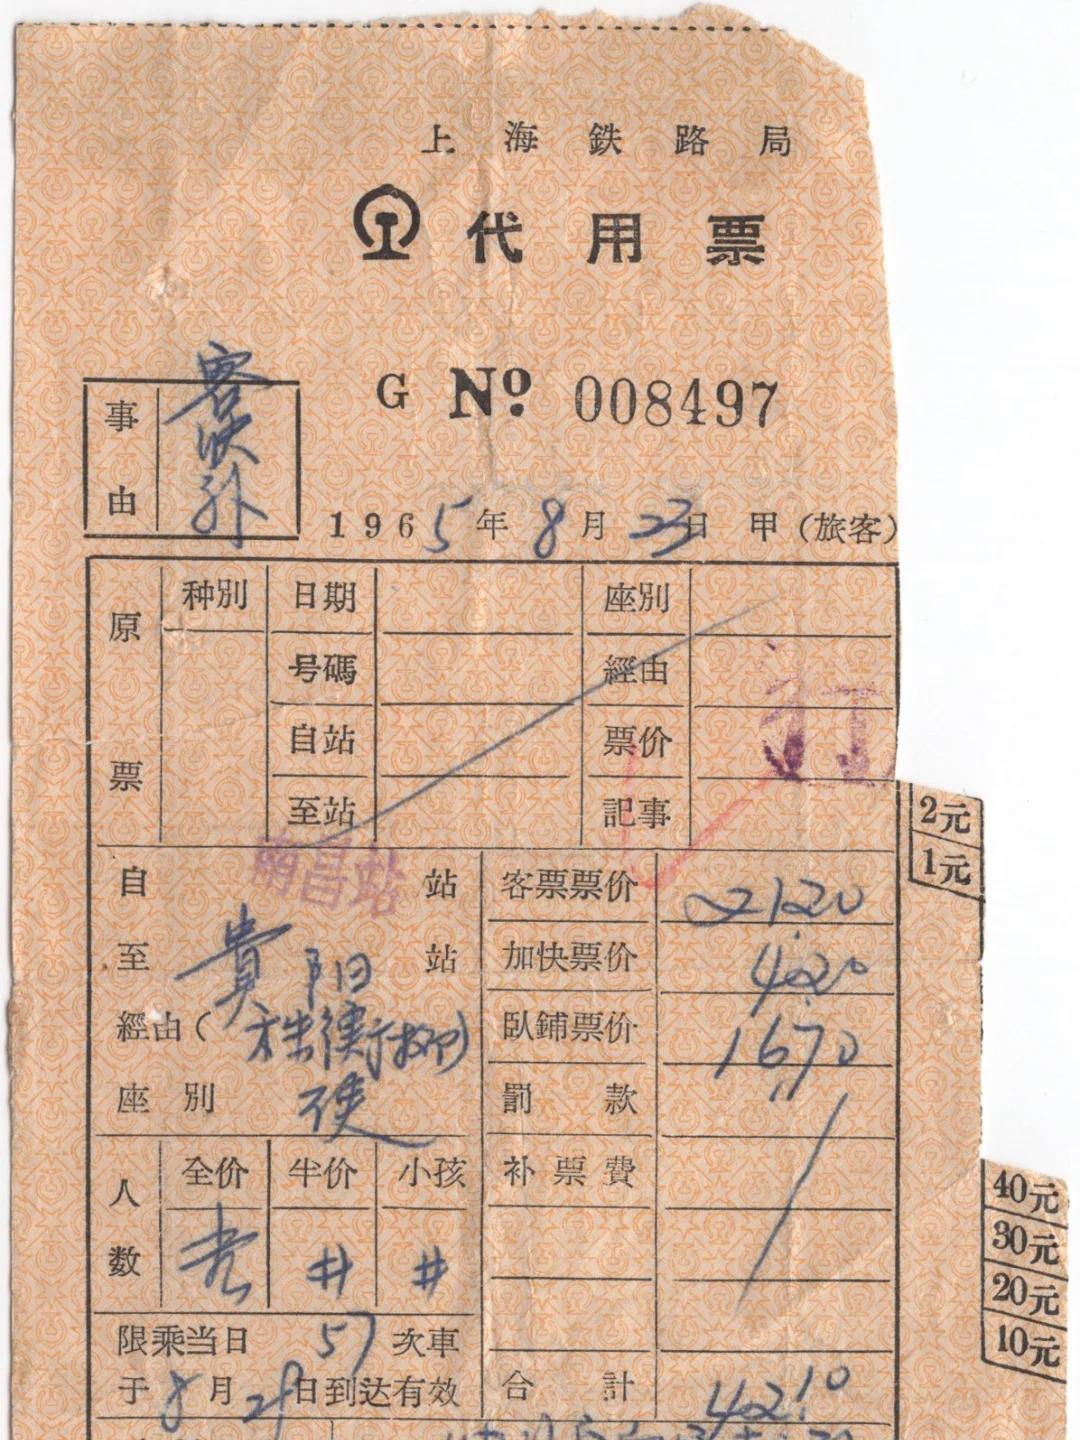 上海鉄路局
代用票
G No. 008497
事由 客快卧
1965年8月23日 甲(旅客)
原票 种别 日期 座别
号碼 經由
自站 票价
至站 記事
打
2元
1元
自 南昌站 站 客票票价 21.20
至 貴阳 站 加快票价 4.20
經由(株衡柳) 臥鋪票价 16.70
座别 硬 罰款
人数 全价 半价 小孩 补票費
壹 # #
40元
30元
20元
10元
限乘当日 57 次車
于8月 日到达有效 合計 42.10